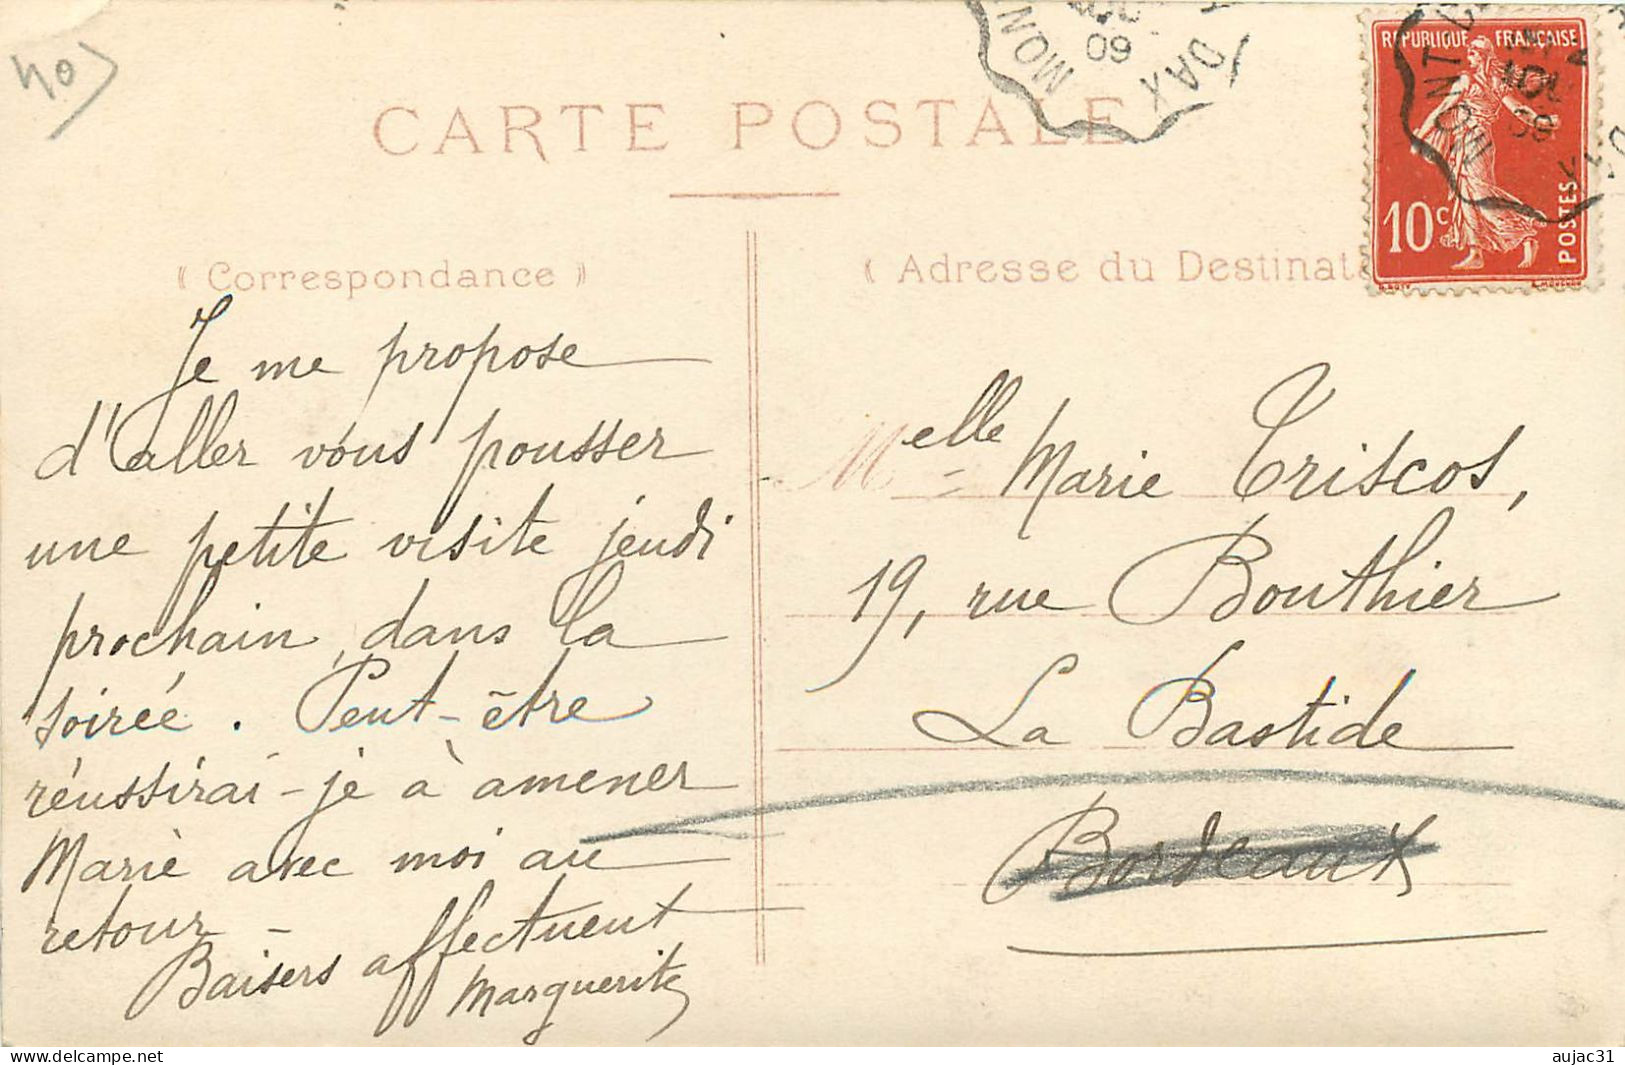 40
CARTE POSTALE
MONT
DAX
09
RÉPUBLIQUE FRANÇAISE
10c
POSTES
MONT
09
« Correspondance »
Je me propose
d'aller vous pousser
une petite visite jeudi
prochain, dans la
soirée. Peut-être
réussirai-je à amener
Marie avec moi au
retour -
Baisers affectueux
Marguerite
« Adresse du Destinat
Melle Marie Triscos,
19, rue Bouthier
La Bastide
Bordeaux
delcampe.net
aujac31